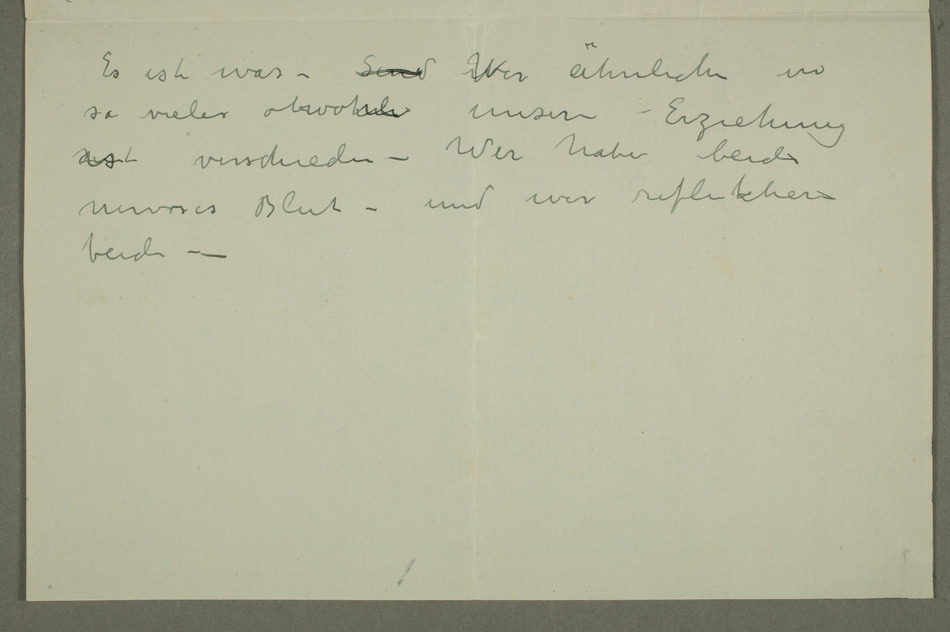 Es ist was - Sind Wir ähnlich in
so vieler obwohl unsere Erziehung
ist verschieden - Wir haben beide
nervoses Blut - und wir reflektieren
beide —